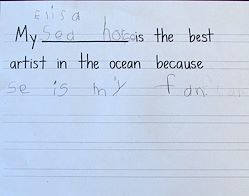 Elisa
My Sea horse is the best
artist in the ocean because
se is my fan.